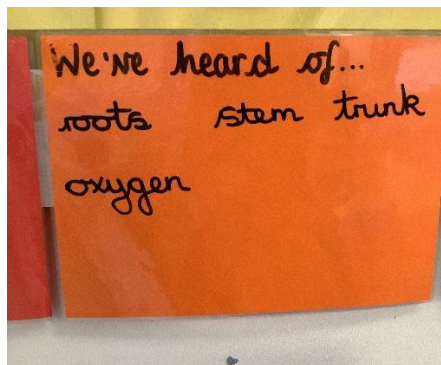 We've heard of...
roots stem trunk
oxygen